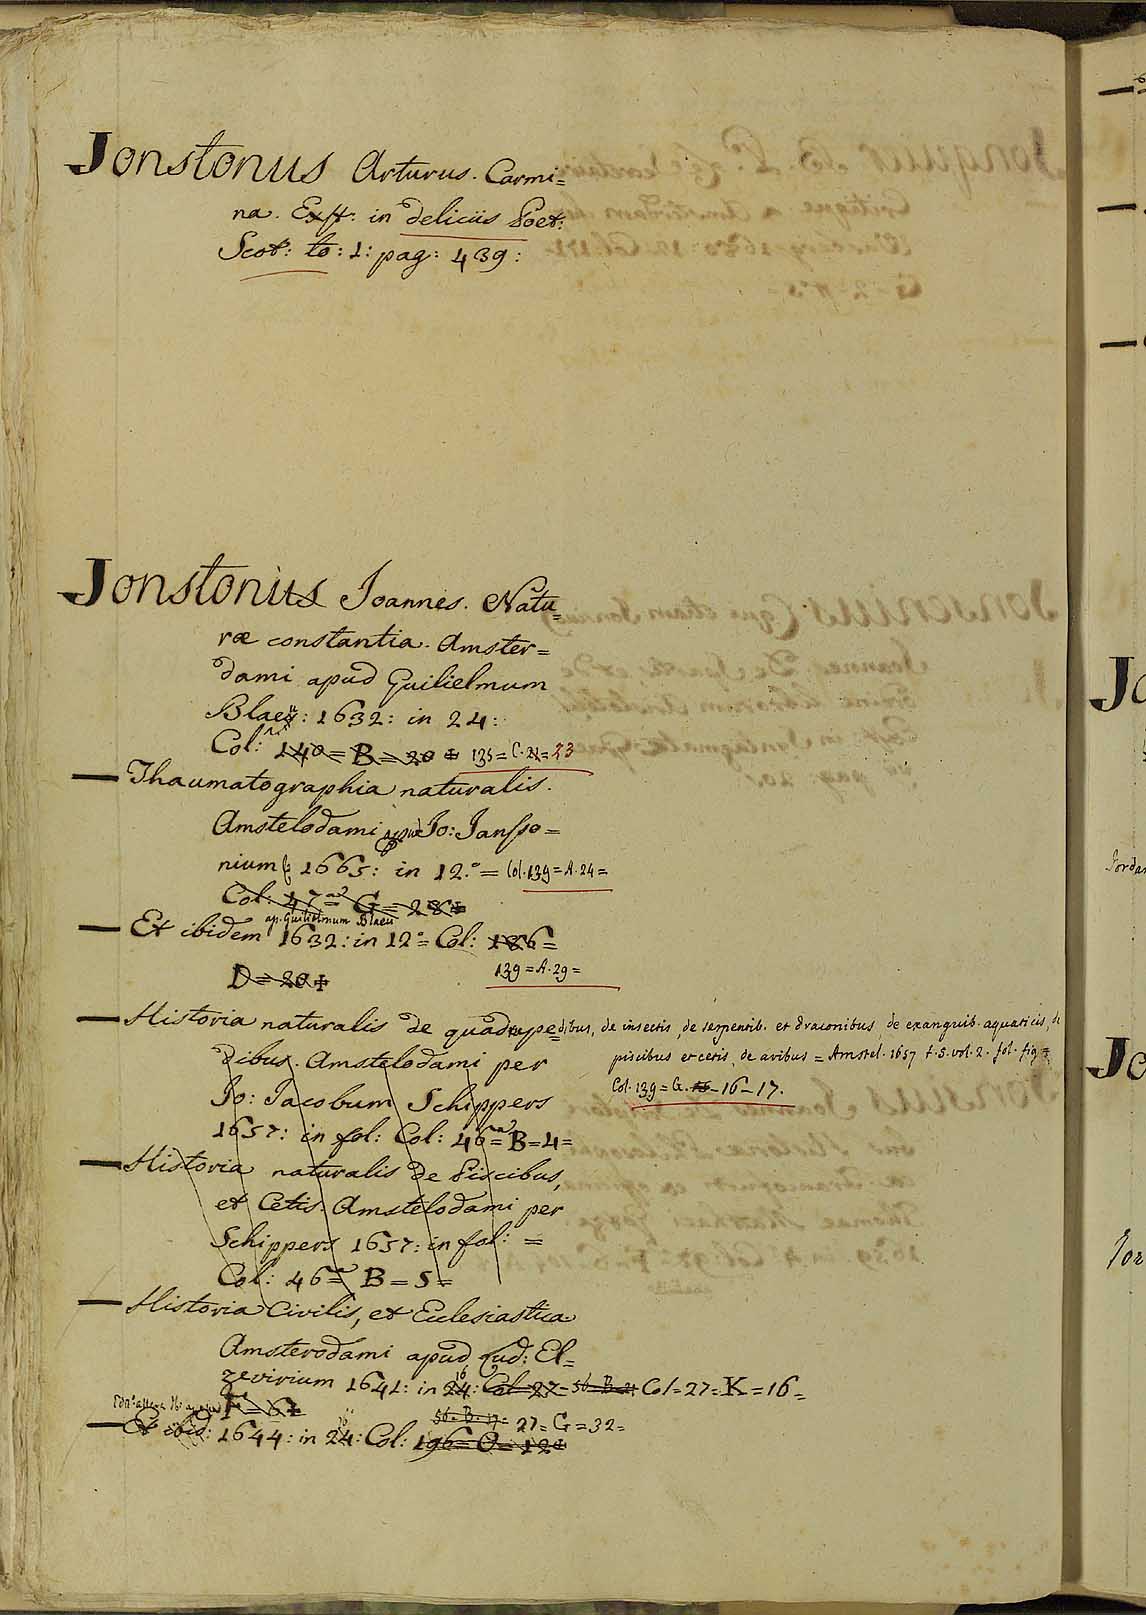 Jonstonus Arturus. Carmi=
na. Exst: in deliciis Poet:
Scot: to: 1: pag: 439:
Jonstonus Joannes. Natu=
ræ constantia. Amster=
dami apud Guilielmum
Blaeu: 1632: in 24:
Col: 140 = B = 20 135 = C. 21 = 23
— Thaumatographia naturalis.
Amstelodami apud Jo: Jansso=
nium 1665: in 12.° = Col. 139 = A. 24 =
Col: 47 = G = 28
ap. Guilielmum Blaeu
— Et ibidem 1632: in 12° = Col: 186 =
D = 20 139 = A. 29 =
— Historia naturalis de quadrupedibus, de insectis, de serpentib. et draconibus, de exanguib. aquaticis, de
dibus. Amstelodami per piscibus et cetis, de avibus = Amstel. 1657 t. 5. vol. 2. fol. fig =
Jo: Jacobum Schippers Col. 139 = G. 16 – 17.
1657: in fol: Col: 46 = B = 4 =
— Historia naturalis de Piscibus,
et Cetis. Amstelodami per
Schippers 1657: in fol: =
Col: 46 = B = 5 =
— Historia Civilis, et Ecclesiastica
Amsterodami apud Lud: El=
16
zevirium 1641: in 24: Col 27 = 56. B. 21 Col = 27 = K = 16 =
F = 6
56. B. 17 = 27 = G = 32 =
16
— Et ibid: 1644: in 24: Col: 196 = O = 12
Jo
Jordan
Jo
Jor